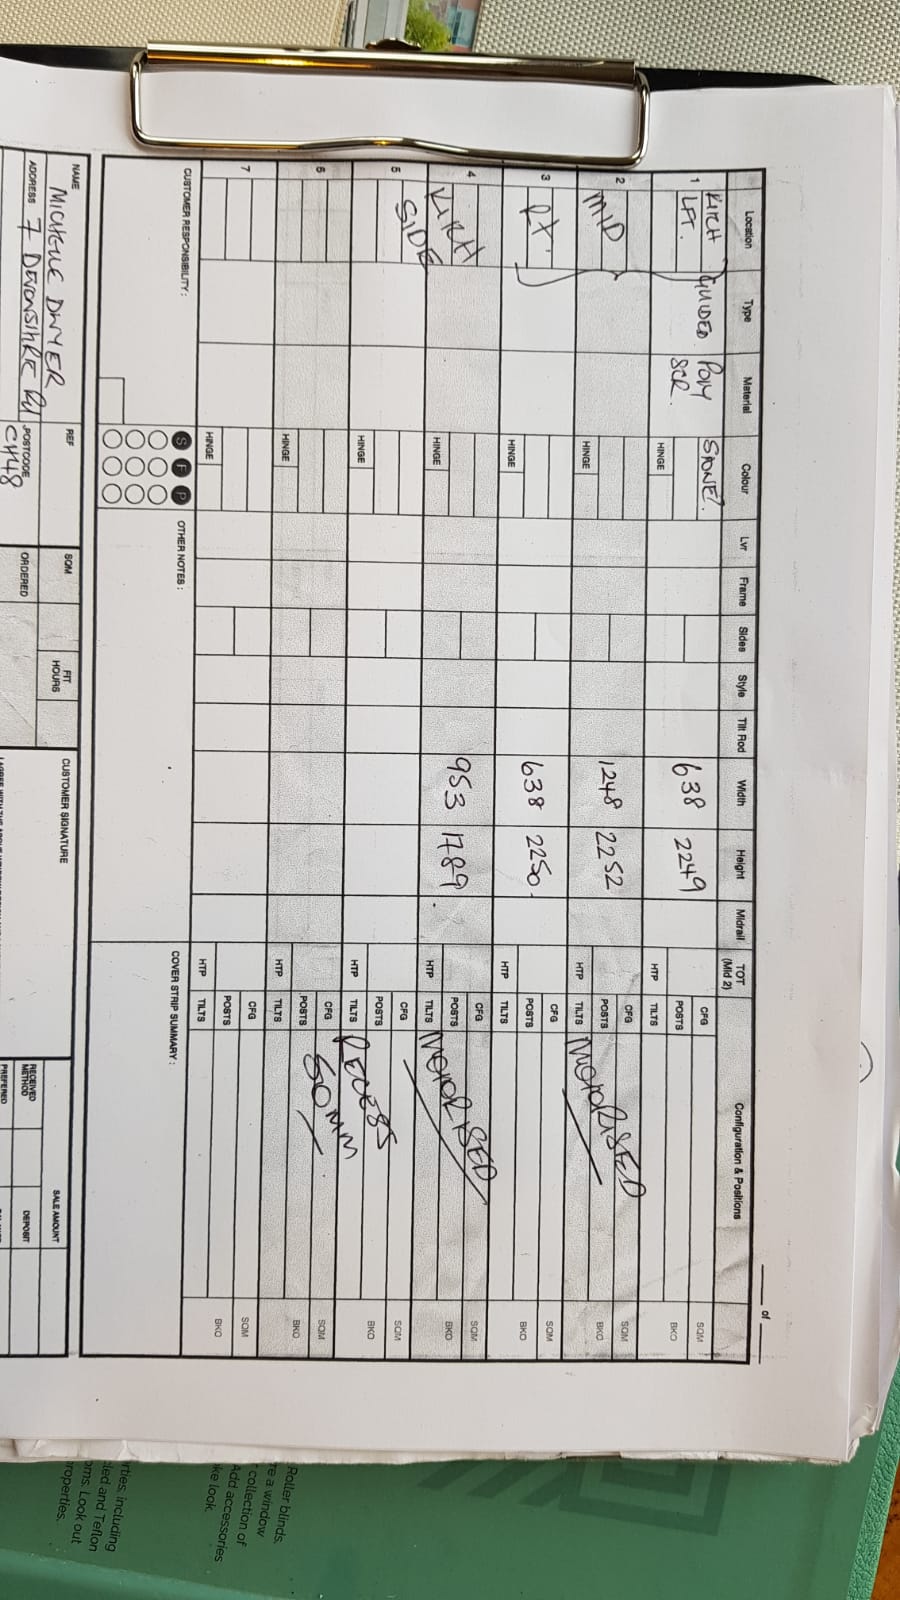 ____ of ____
Location Type Material Colour Lvr Frame Sides Style Tilt Rod Width Height Midrail TOT (Mid 2) Configuration & Positions
1 KITCH LFT. GUIDED POLY SCR STONE?. HINGE 638 2249 HTP CFG POSTS TILTS SQM BKO
2 MID HINGE 1248 2252 HTP CFG POSTS TILTS MOTORISED SQM BKO
3 RX HINGE 638 2250. HTP CFG POSTS TILTS SQM BKO
4 KITCH SIDE HINGE 953 1789. HTP CFG POSTS TILTS MOTORISED SQM BKO
5 HINGE HTP CFG POSTS TILTS RECESS SQM BKO
6 HINGE HTP CFG POSTS TILTS 50MM SQM BKO
7 HINGE HTP CFG POSTS TILTS SQM BKO
CUSTOMER RESPONSIBILITY: S F P OTHER NOTES: COVER STRIP SUMMARY:
NAME MICHELLE DWYER REF SQM FIT HOURS CUSTOMER SIGNATURE SALE AMOUNT
ADDRESS 7 DEVONSHIRE Rd POSTCODE CH48 ORDERED RECEIVED METHOD DEPOSIT
PREFERED
Roller blinds.
re a window
collection of
Add accessories
ke look.
rties, including
led and Teflon
oms. Look out
roperties.